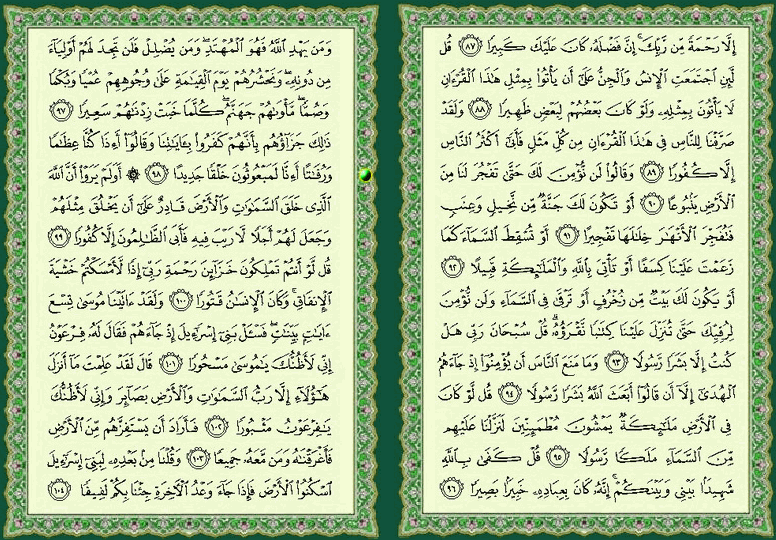 إِلَّا رَحْمَةً مِّن رَّبِّكَ ۚ إِنَّ فَضْلَهُۥ كَانَ عَلَيْكَ كَبِيرًا ٨٧ قُل
لَّئِنِ ٱجْتَمَعَتِ ٱلْإِنسُ وَٱلْجِنُّ عَلَىٰٓ أَن يَأْتُوا۟ بِمِثْلِ هَٰذَا ٱلْقُرْءَانِ
لَا يَأْتُونَ بِمِثْلِهِۦ وَلَوْ كَانَ بَعْضُهُمْ لِبَعْضٍ ظَهِيرًا ٨٨ وَلَقَدْ
صَرَّفْنَا لِلنَّاسِ فِى هَٰذَا ٱلْقُرْءَانِ مِن كُلِّ مَثَلٍ فَأَبَىٰٓ أَكْثَرُ ٱلنَّاسِ
إِلَّا كُفُورًا ٨٩ وَقَالُوا۟ لَن نُّؤْمِنَ لَكَ حَتَّىٰ تَفْجُرَ لَنَا مِنَ
ٱلْأَرْضِ يَنۢبُوعًا ٩٠ أَوْ تَكُونَ لَكَ جَنَّةٌ مِّن نَّخِيلٍ وَعِنَبٍ
فَتُفَجِّرَ ٱلْأَنْهَٰرَ خِلَٰلَهَا تَفْجِيرًا ٩١ أَوْ تُسْقِطَ ٱلسَّمَآءَ كَمَا
زَعَمْتَ عَلَيْنَا كِسَفًا أَوْ تَأْتِىَ بِٱللَّهِ وَٱلْمَلَٰٓئِكَةِ قَبِيلًا ٩٢
أَوْ يَكُونَ لَكَ بَيْتٌ مِّن زُخْرُفٍ أَوْ تَرْقَىٰ فِى ٱلسَّمَآءِ وَلَن نُّؤْمِنَ
لِرُقِيِّكَ حَتَّىٰ تُنَزِّلَ عَلَيْنَا كِتَٰبًا نَّقْرَؤُهُۥ ۗ قُلْ سُبْحَانَ رَبِّى هَلْ
كُنتُ إِلَّا بَشَرًا رَّسُولًا ٩٣ وَمَا مَنَعَ ٱلنَّاسَ أَن يُؤْمِنُوٓا۟ إِذْ جَآءَهُمُ
ٱلْهُدَىٰٓ إِلَّآ أَن قَالُوٓا۟ أَبَعَثَ ٱللَّهُ بَشَرًا رَّسُولًا ٩٤ قُل لَّوْ كَانَ
فِى ٱلْأَرْضِ مَلَٰٓئِكَةٌ يَمْشُونَ مُطْمَئِنِّينَ لَنَزَّلْنَا عَلَيْهِم
مِّنَ ٱلسَّمَآءِ مَلَكًا رَّسُولًا ٩٥ قُلْ كَفَىٰ بِٱللَّهِ
شَهِيدًۢا بَيْنِى وَبَيْنَكُمْ ۚ إِنَّهُۥ كَانَ بِعِبَادِهِۦ خَبِيرًۢا بَصِيرًا ٩٦
وَمَن يَهْدِ ٱللَّهُ فَهُوَ ٱلْمُهْتَدِ ۖ وَمَن يُضْلِلْ فَلَن تَجِدَ لَهُمْ أَوْلِيَآءَ
مِن دُونِهِۦ ۖ وَنَحْشُرُهُمْ يَوْمَ ٱلْقِيَٰمَةِ عَلَىٰ وُجُوهِهِمْ عُمْيًا وَبُكْمًا
وَصُمًّا ۖ مَّأْوَىٰهُمْ جَهَنَّمُ ۖ كُلَّمَا خَبَتْ زِدْنَٰهُمْ سَعِيرًا ٩٧
ذَٰلِكَ جَزَآؤُهُم بِأَنَّهُمْ كَفَرُوا۟ بِـَٔايَٰتِنَا وَقَالُوٓا۟ أَءِذَا كُنَّا عِظَٰمًا
وَرُفَٰتًا أَءِنَّا لَمَبْعُوثُونَ خَلْقًا جَدِيدًا ٩٨ ۞ أَوَلَمْ يَرَوْا۟ أَنَّ ٱللَّهَ
ٱلَّذِى خَلَقَ ٱلسَّمَٰوَٰتِ وَٱلْأَرْضَ قَادِرٌ عَلَىٰٓ أَن يَخْلُقَ مِثْلَهُمْ
وَجَعَلَ لَهُمْ أَجَلًا لَّا رَيْبَ فِيهِ فَأَبَى ٱلظَّٰلِمُونَ إِلَّا كُفُورًا ٩٩
قُل لَّوْ أَنتُمْ تَمْلِكُونَ خَزَآئِنَ رَحْمَةِ رَبِّىٓ إِذًا لَّأَمْسَكْتُمْ خَشْيَةَ
ٱلْإِنفَاقِ ۚ وَكَانَ ٱلْإِنسَٰنُ قَتُورًا ١٠٠ وَلَقَدْ ءَاتَيْنَا مُوسَىٰ تِسْعَ
ءَايَٰتٍۭ بَيِّنَٰتٍ ۖ فَسْـَٔلْ بَنِىٓ إِسْرَٰٓءِيلَ إِذْ جَآءَهُمْ فَقَالَ لَهُۥ فِرْعَوْنُ
إِنِّى لَأَظُنُّكَ يَٰمُوسَىٰ مَسْحُورًا ١٠١ قَالَ لَقَدْ عَلِمْتَ مَآ أَنزَلَ
هَٰٓؤُلَآءِ إِلَّا رَبُّ ٱلسَّمَٰوَٰتِ وَٱلْأَرْضِ بَصَآئِرَ وَإِنِّى لَأَظُنُّكَ
يَٰفِرْعَوْنُ مَثْبُورًا ١٠٢ فَأَرَادَ أَن يَسْتَفِزَّهُم مِّنَ ٱلْأَرْضِ
فَأَغْرَقْنَٰهُ وَمَن مَّعَهُۥ جَمِيعًا ١٠٣ وَقُلْنَا مِنۢ بَعْدِهِۦ لِبَنِىٓ إِسْرَٰٓءِيلَ
ٱسْكُنُوا۟ ٱلْأَرْضَ فَإِذَا جَآءَ وَعْدُ ٱلْءَاخِرَةِ جِئْنَا بِكُمْ لَفِيفًا ١٠٤